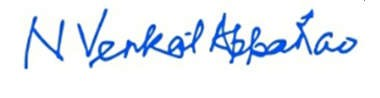 N Venkat Apparao